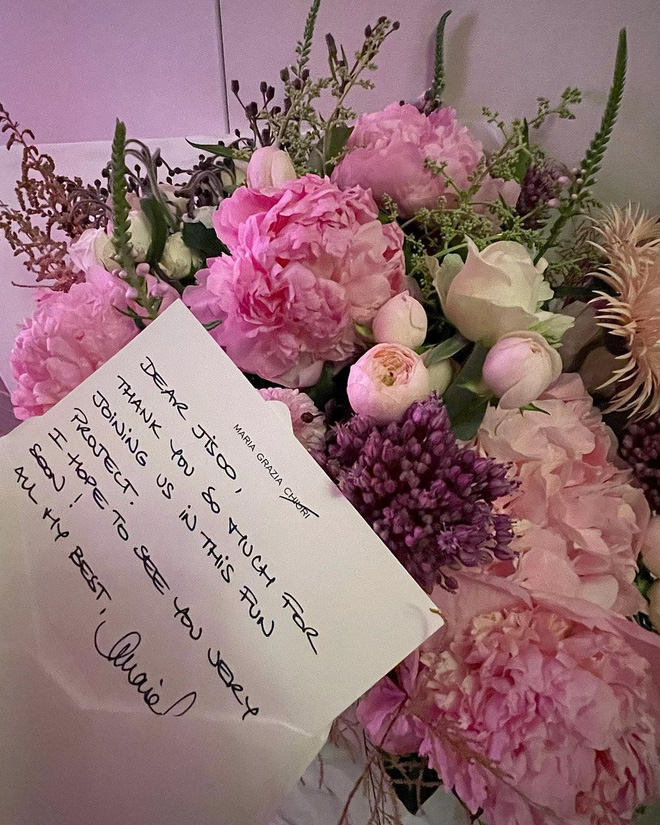 MARIA GRAZIA CHIURI
DEAR JISOO,
THANK YOU SO MUCH FOR
JOINING US IN THIS FUN
PROJECT.
I HOPE TO SEE YOU VERY
SOON!
ALL MY BEST,
Maria